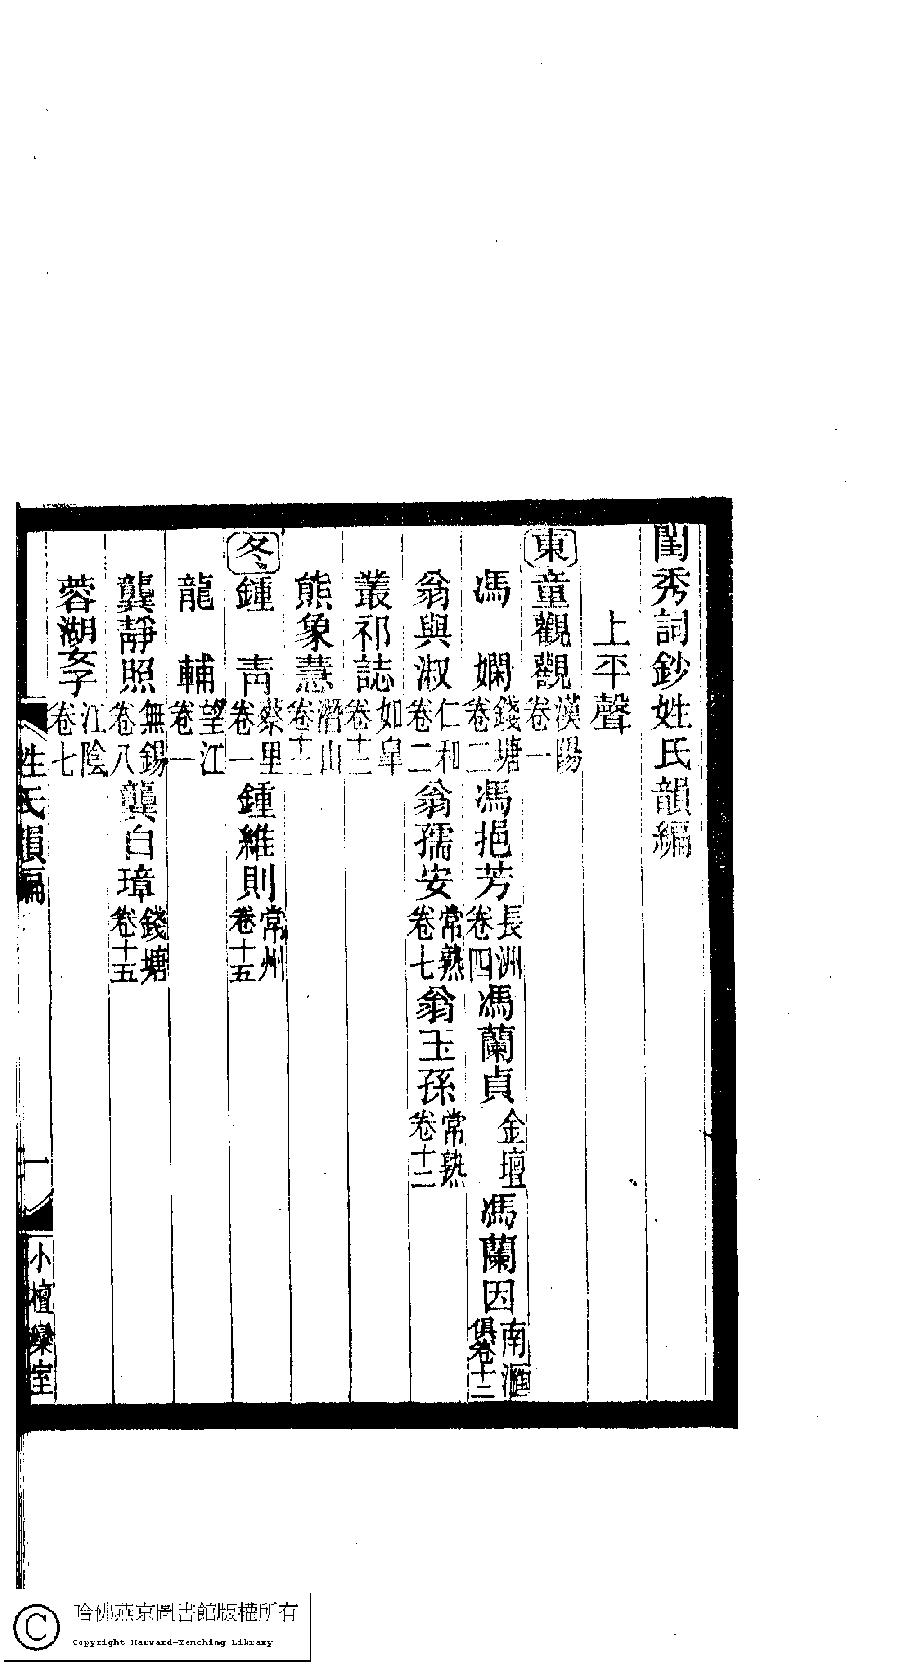 閨秀詞鈔姓氏韻編
上平聲
東 童觀觀 漢陽 卷一
馮嫻 錢塘 卷二 馮挹芳 長洲 卷四 馮蘭貞 金壇 馮蘭因 南滙 俱卷十二
翁與淑 仁和 卷二 翁孺安 常熟 卷七 翁玉孫 常熟 卷十二
叢祁誌 如皐 卷十三
熊象慧 潛山
冬 鍾青 蔡里 卷一 鍾維則 常州 卷十五
龍輔 望江 卷一
龔靜照 無錫 卷八 龔白璋 錢塘 卷十五
蓉湖女子 江陰 卷七
姓氏韻編
一
小檀欒室
哈佛燕京圖書館版權所有
Copyright Harvard-Yenching Library